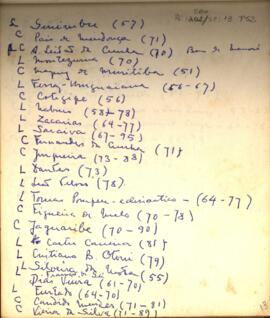 L Sinimbu (57)
C Pais de Mendonça (71)
L C A. Leitão da Cunha (70) Barão de
L Montezuma (70)
C de Muritiba (51)
L Ferraz - Uruguaiana (56-67)
C Cotegipe (56)
L Nabuco (58-78)
L Zacarias (64-77)
L Saraiva (67-95)
C Fernandes da Cunha (71)
C Junqueira (73-88)
L Dantas (73)
L Leão Veloso (78)
L Tomas Pompeu - eclesiastico - (64-77)
C Figueira de Melo (70-78)
C Jaguaribe (70-90)
L Castro Carreira (81)
L Cristiano B. Otoni (79)
L Silveira da Mota (55)
Dias Vieira (61-70)
L Furtado (64-70)
C Candido Mendes (71-81)
C Vieira da Silva (71-89)